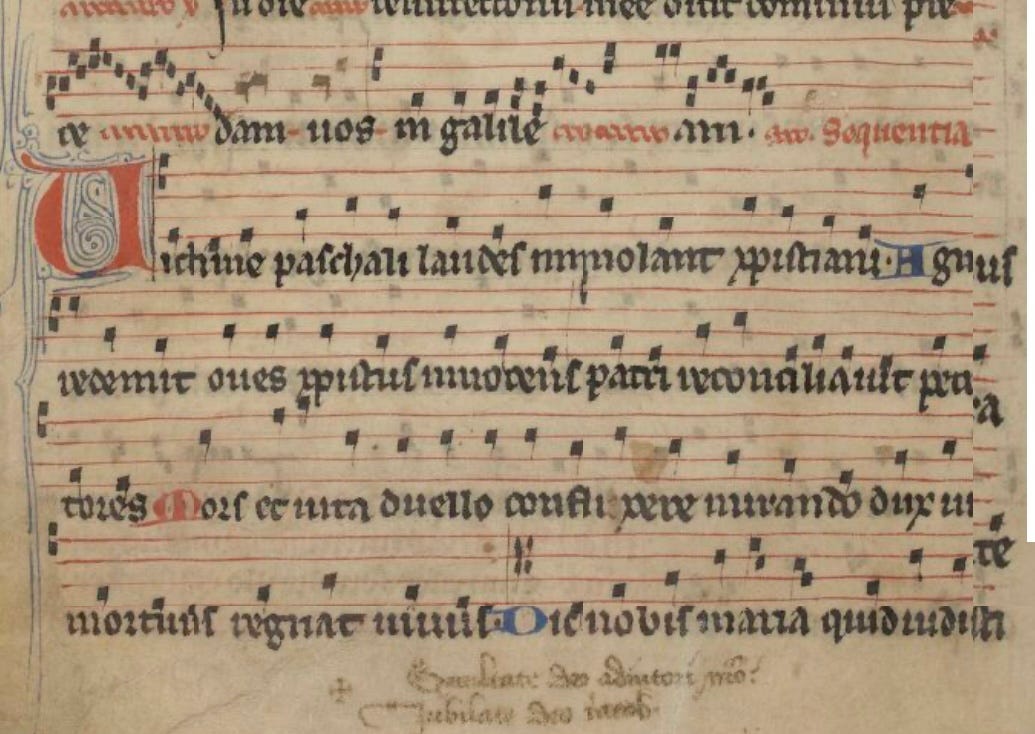 In die resurrectionis mee dicit dominus pre
ce dam uos in galile am. Sequentia
Uictime paschali laudes inmolant xpistiani. Agnus
redemit oues xpistus innocens patri reconciliauit pecca
tores Mors et uita duello conflixere mirando dux uite
mortuus regnat uiuus. Dic nobis maria quid uidisti
Exultate deo adiutori nro:
Jubilate deo iacob.